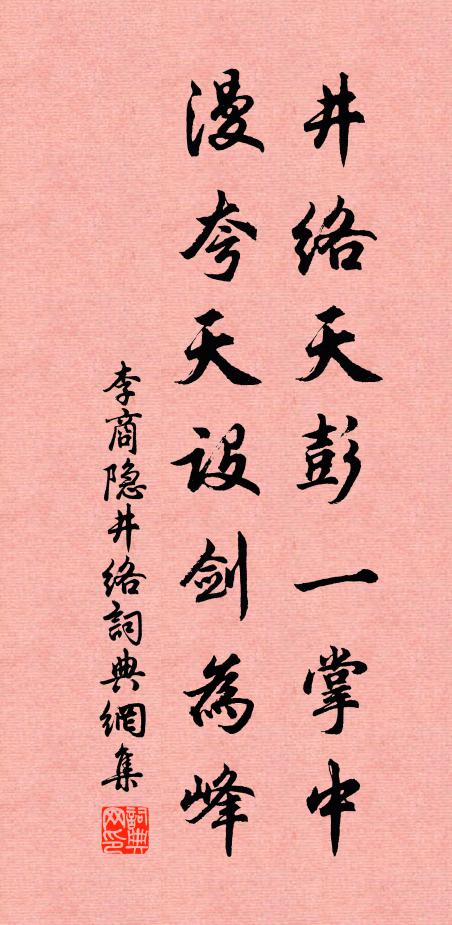 井络天彭一掌中
漫夸天设剑為峰
李商隐井络詞典網集
詞典
网印